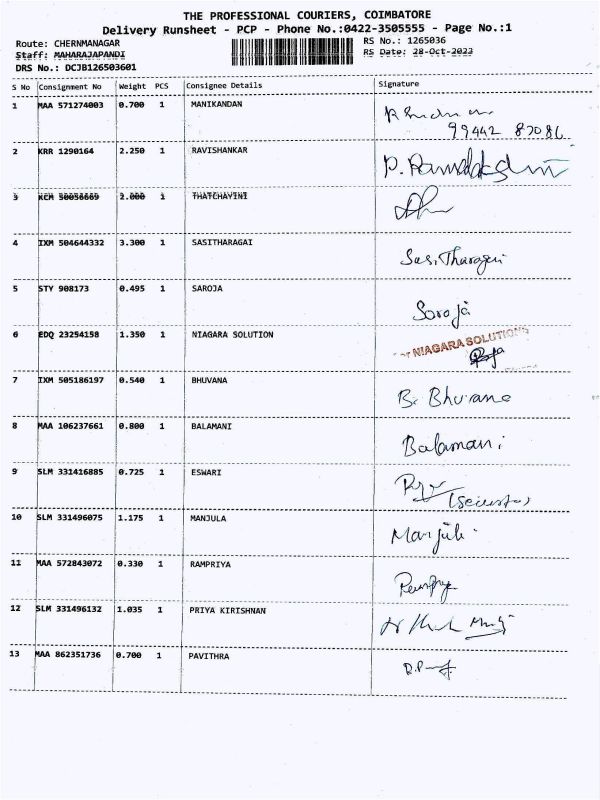 THE PROFESSIONAL COURIERS, COIMBATORE
Delivery Runsheet - PCP - Phone No.:0422-3505555 - Page No.:1
Route: CHERNMANAGAR RS No.: 1265036
Staff: MAHARAJAPANDI RS Date: 28-Oct-2023
DRS No.: DCJB126503601
S No Consignment No Weight PCS Consignee Details Signature
1 MAA 571274003 0.700 1 MANIKANDAN
99442 87086
2 KRR 1290164 2.250 1 RAVISHANKAR
3 KCM 50056669 2.000 1 THATCHAYINI
4 IXM 504644332 3.300 1 SASITHARAGAI
Sasitharagai
5 STY 908173 0.495 1 SAROJA
Saroja
6 EDQ 23254158 1.350 1 NIAGARA SOLUTION
For NIAGARA SOLUTIONS
7 IXM 505186197 0.540 1 BHUVANA
B. Bhuvana
8 MAA 106237661 0.800 1 BALAMANI
Balamani
9 SLM 331416885 0.725 1 ESWARI
10 SLM 331496075 1.175 1 MANJULA
11 MAA 572843072 0.330 1 RAMPRIYA
12 SLM 331496132 1.035 1 PRIYA KIRISHNAN
13 MAA 862351736 0.700 1 PAVITHRA